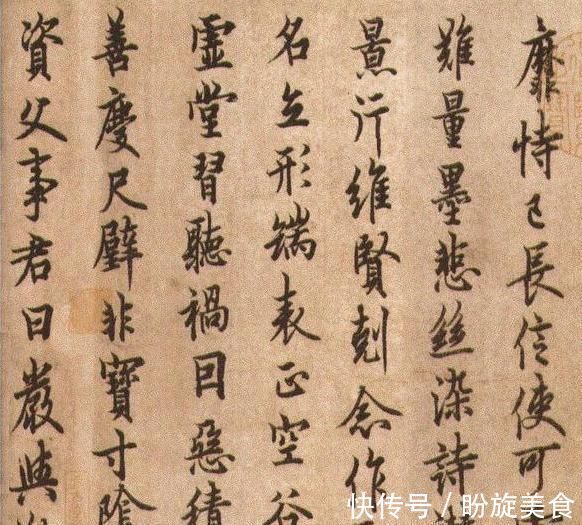 靡恃己長信使可
難量墨悲絲染詩
景行維賢剋念作
名立形端表正空谷
虛堂習聽禍因惡積
善慶尺璧非寶寸陰
資父事君曰嚴與
快传号/盼旋美食